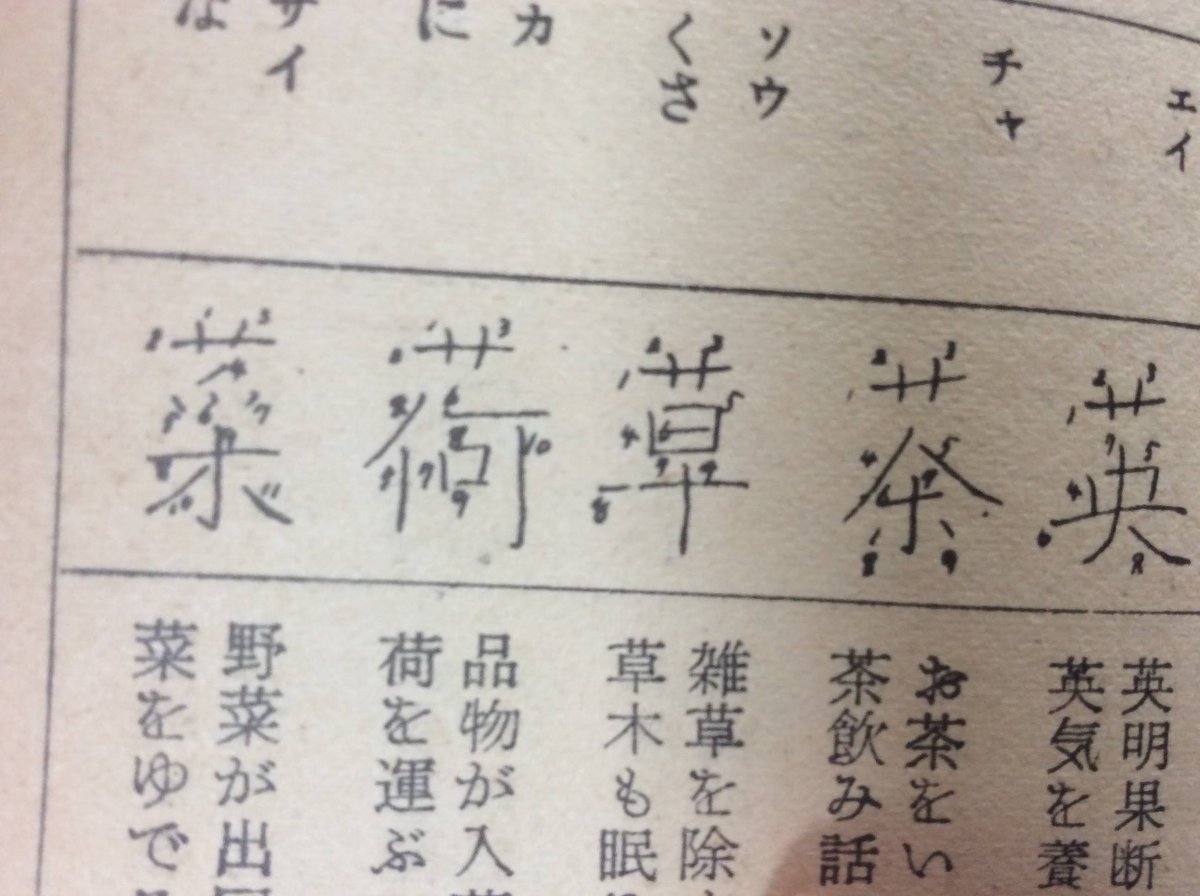 エイ
英
英明果断
英気を養
チャ
茶
お茶をい
茶飲み話
ソウ
くさ
草
雑草を除
草木も眠
カ
に
荷
品物が入
荷を運ぶ
サイ
な
菜
野菜が出
菜をゆで